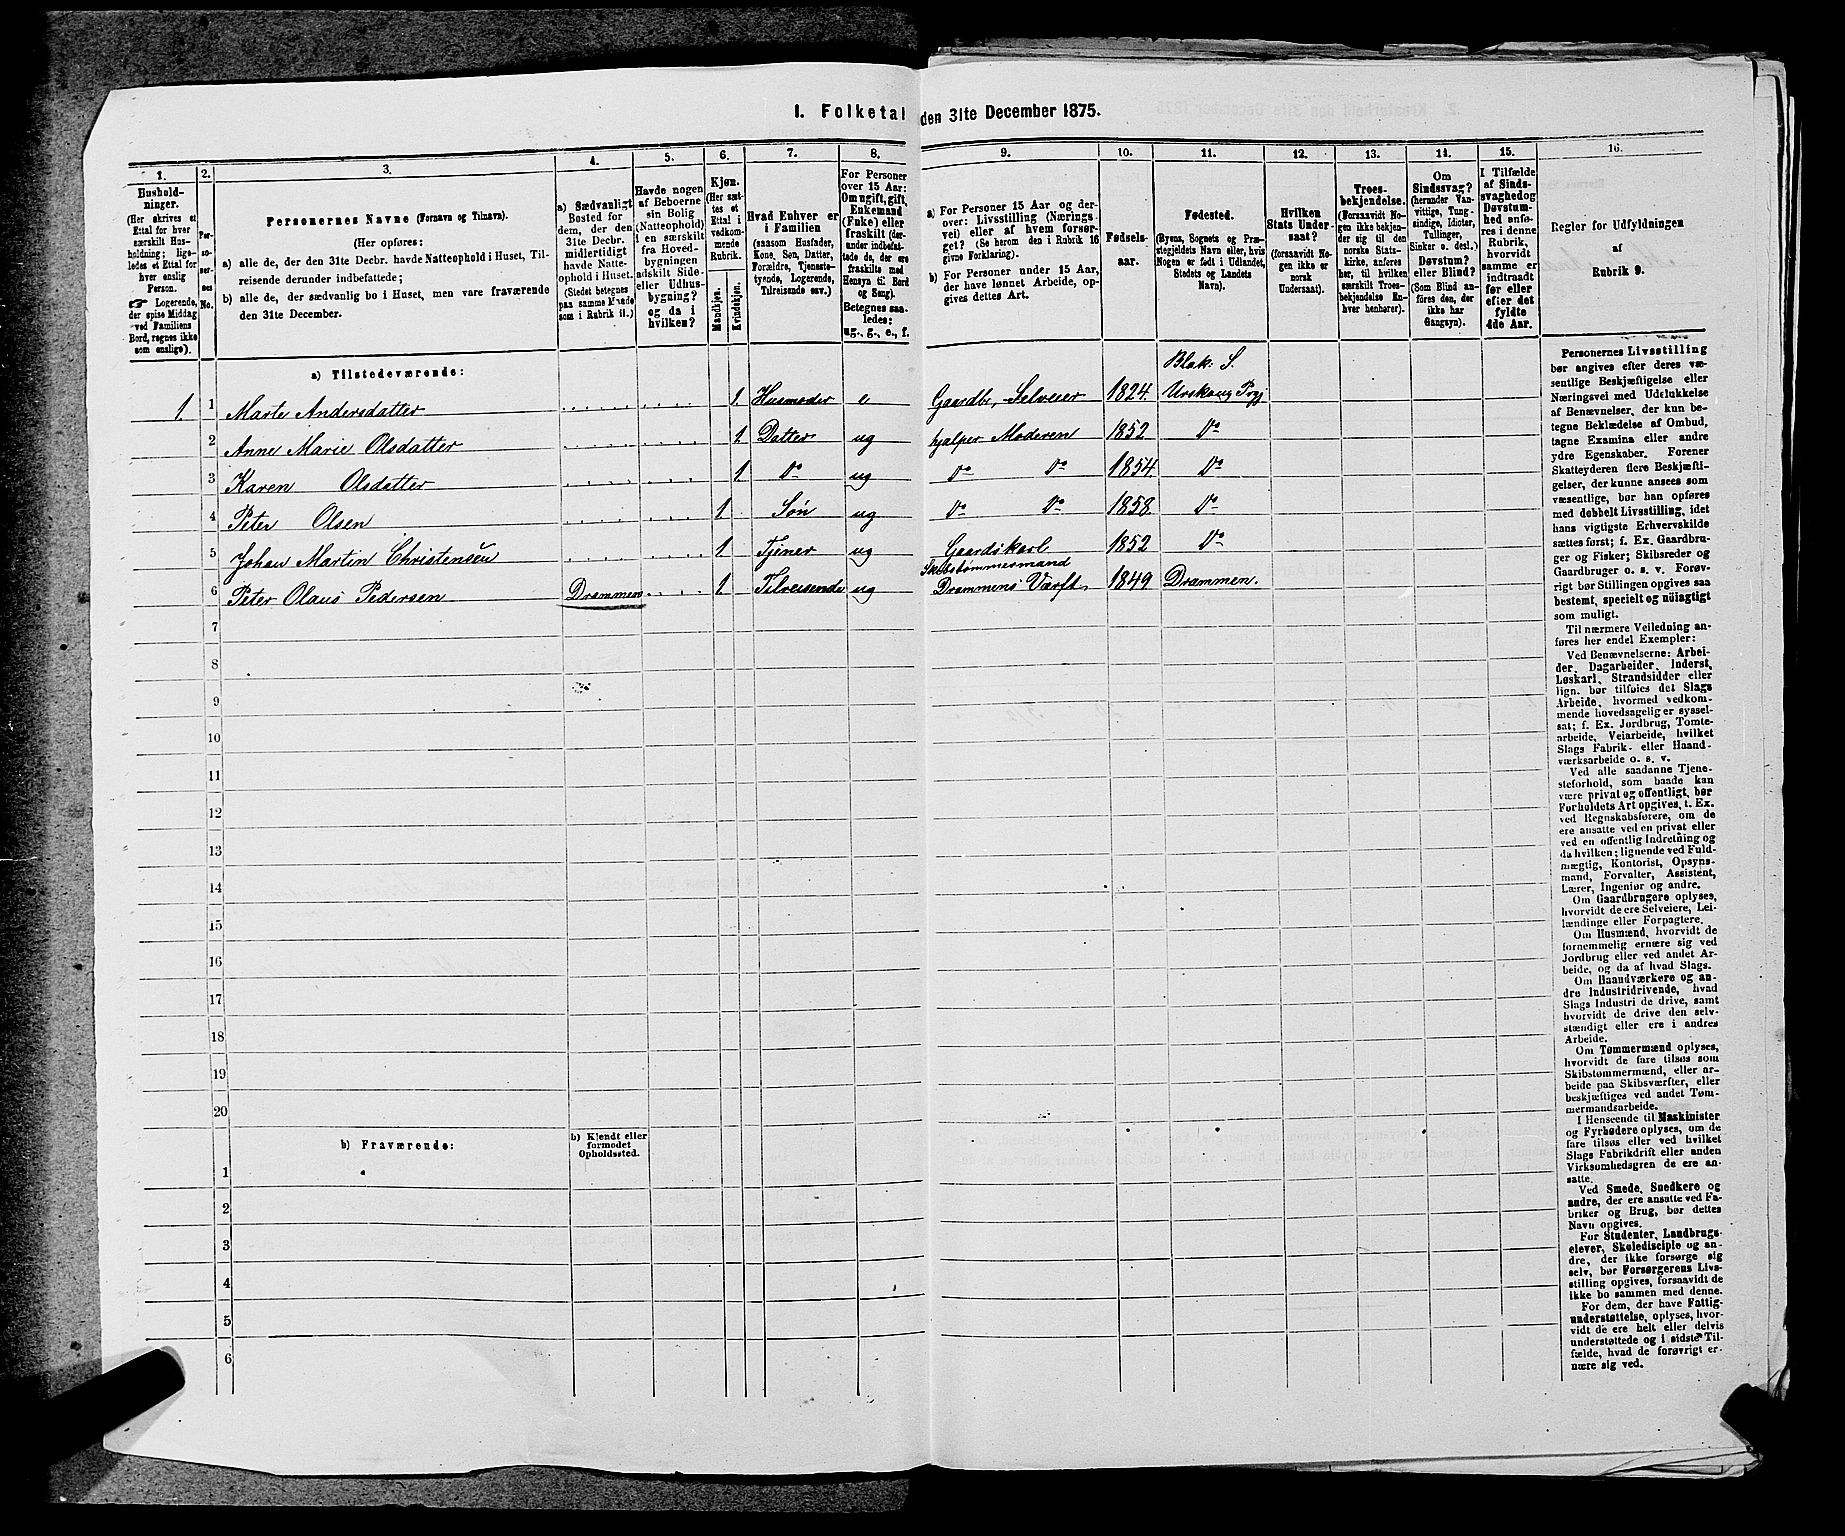 1. Folketal den 31te December 1875.
1.
2.
3.
4.
5.
6.
7.
8.
9.
10.
11.
12.
13.
14.
15.
16.
Hushold-
ninger.
(Her skrives et
Ettal for hver
særskilt Hus-
holdning; lige-
ledes et Ettal for
hver enslig
Person.
☞ Logerende,
der spise Middag
ved Familiens
Bord, regnes ikke
som enslige).
Per-
so-
ner-
nes
No.
Personernes Navne (Fornavn og Tilnavn).
(Her opføres:
a) alle de, der den 31te Decbr. havde Natteophold i Huset, Til-
reisende derunder indbefattede;
b) alle de, der sædvanlig bo i Huset, men vare fraværende
den 31te December.
a) Sædvanligt
Bosted for
dem, der den
31te Decbr.
midlertidigt
havde Natte-
ophold i Huset.
(Stedet betegnes
paa samme Maade
som i Rubrik 11.)
Havde nogen
af Beboerne
sin Bolig
(Natteophold)
i en særskilt
fra Hoved-
bygningen
adskilt Side-
eller Udhus-
bygning?
og da i
hvilken?
Kjøn.
(Her sæt-
tes et
Ettal i
vedkom-
mende
Rubrik.
Mandkjøn.
Kvindekjøn.
Hvad Enhver er
i Familien
(saasom Husfader,
Kone, Søn, Datter,
Forældre, Tjeneste-
tyende, Logerende,
Tilreisende osv.)
For Personer
over 15 Aar:
Om ugift, gift,
Enkemand
(Enke) eller
fraskilt (der-
under indbefat-
tede de, der ere
fraskilte med
Hensyn til Bord
og Seng).
Betegnes saa-
ledes:
ug., g., e., f.
a) For Personer 15 Aar og der-
over: Livsstilling (Nærings-
vei) eller af hvem forsør-
get? (Se herom den i Rubrik 16
givne Forklaring).
b) For Personer under 15 Aar,
der have lønnet Arbeide, op-
gives dettes Art.
Fødsels-
aar.
Fødested.
(Byens, Sognets og Præ-
stegjeldets Navn eller, hvis
Nogen er født i Udlandet,
Stedets og Landets
Navn).
Hvilken
Stats Under-
saat?
(forsaavidt No-
gen ikke er
norsk
Undersaat).
Troes-
bekjendelse.
(Forsaavidt No-
gen ikke bekjen-
der sig til den
norske Stats-
kirke, anføres
her, til hvilken
særskilt Troes-
bekjendelse En-
hver henhører).
Om
Sindssvag?
(herunder Van-
vittige, Tung-
sindige, Idioter,
Tullinger,
Sinker o. desl.)
Døvstum?
eller Blind?
(Som Blind an-
føres den, der
ikke har
Gangsyn).
I Tilfælde
af Sinds-
svaghed og
Døvstum-
hed anfø-
res i denne
Rubrik,
hvorvidt
samme er
indtraadt
før eller
efter det
fyldte
4de Aar.
Regler for Udfyldningen
af
Rubrik 9.
a) Tilstedeværende:
Blak: S.
1 1 Marte Andersdatter 1. Husmoder e Gaardbr, Selveier 1824. Urskoug Prgj
2 Anne Marie Olsdatter 1 Datter ug hjælper Moderen 1852 Do
3 Karen Olsdatter 1 Do ug Do Do 1854. Do
4 Peter Olsen 1 Søn ug Do Do 1858. Do
5 Johan Martin Christensen 1 Tjener ug Gaardskarl 1852 Do
Skibstømmermand
6 Peter Olaus Pedersen Drammen 1 Tilreisende ug Drammens Værft 1849 Drammen.
7
8
9
10
11
12
13
14
15
16
17
18
19
20
b) Fraværende:
b) Kjendt eller
formodet
Opholdssted.
1
2
3
4
5
6
Personernes Livsstilling
bør angives efter deres væ-
sentlige Beskjæftigelse eller
Næringsvei med Udelukkelse
af Benævnelser, der kun be-
tegne Beklædelse af Ombud,
tagne Examina eller andre
ydre Egenskaber. Forener
Skatteyderen flere Beskjæfti-
gelser, der kunne ansees som
væsentlige, bør han opføres
med dobbelt Livsstilling, idet
hans vigtigste Erhvervskilde
sættes først; f. Ex. Gaardbru-
ger og Fisker; Skibsreder og
Gaardbruger o. s. v. Forøv-
rigt bør Stillingen opgives saa
bestemt, specielt og nöiagtigt
som muligt.
Til nærmere Veiledning an-
føres her endel Exempler:
Ved Benævnelserne: Arbei-
der, Dagarbeider, Inderst,
Løskarl, Strandsidder eller
lign. bør tilføies det Slags
Arbeide, hvormed vedkom-
mende hovedsagelig er syssel-
sat; f. Ex. Jordbrug, Tomte-
arbeide, Veiarbeide, hvilket
Slags Fabrik- eller Haand-
værksarbeide o. s. v.
Ved alle saadanne Tjene-
steforhold, som baade kan
være privat og offentligt, bør
Forholdets Art opgives, t. Ex.
ved Regnskabsførere, om de
ere ansatte ved en privat eller
ved en offentlig Indretning og
da hvilken; lignende ved Fuld-
mægtig, Kontorist, Opsyns-
mand, Forvalter, Assistent,
Lærer, Ingeniør og andre.
Om Gaardbrugere oplyses,
hvorvidt de ere Selveiere, Lei-
lændinge eller Forpagtere.
Om Husmænd, hvorvidt de
fornemmelig ernære sig ved
Jordbrug eller ved andet Ar-
beide, og da af hvad Slags.
Om Haandværkere og an-
dre Industridrivende, hvad
Slags Industri de drive, samt
hvorvidt de drive den selv-
stændigt eller ere i andres
Arbeide.
Om Tømmermænd oplyses,
hvorvidt de fare tilsøs som
Skibstømmermænd, eller ar-
beide paa Skibsværfter, eller
beskjæftiges ved andet Tøm-
mermandsarbeide.
I Henseende til Maskinister
og Fyrbødere oplyses, om de
fare tilsøs eller ved hvilket
Slags Fabrikdrift eller anden
Virksomhedsgren de ere an-
satte.
Ved Smede, Snedkere og
andre, der ere ansatte ved Fa-
briker og Brug, bør dettes
Navn opgives.
For Studenter, Landbrugs-
elever, Skoledisciple og an-
dre, der ikke forsørge sig
selv, bør Forsørgerens Livs-
stilling opgives, forsaavidt de
ikke bo sammen med denne.
For dem, der have Fattig-
understøttelse, oplyses, hvor-
vidt de ere helt eller delvis
understøttede og i sidste Til-
fælde, hvad de forøvrigt er-
nære sig ved.